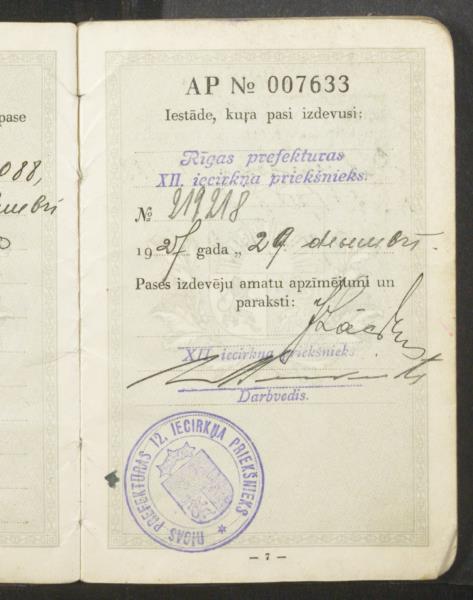 pase
088,
AP № 007633
Iestāde, kuŗa pasi izdevusi:
Rīgas prefekturas
XII. iecirkņa priekšnieks.
№ 219218
1927 gada „ 29 decembrī.
Pases izdevēju amatu apzīmējumi un
paraksti:
XII. iecirkņa priekšnieks
Darbvedis.
RĪGAS PREFEKTŪRAS 12. IECIRKŅA PRIEKŠNIEKS
— 7 —